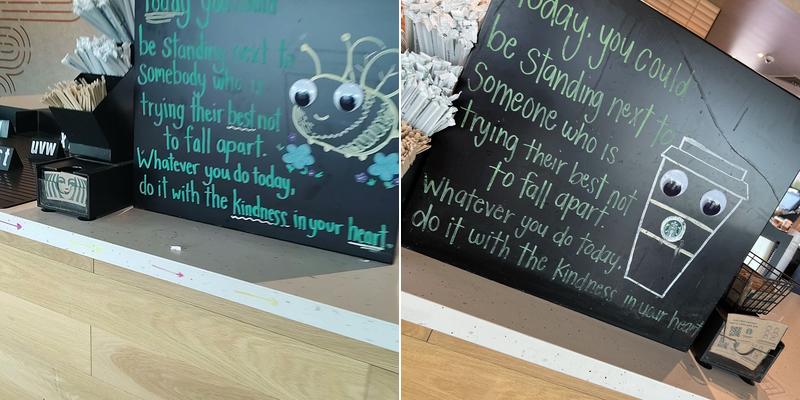 Today you could
be standing next to
somebody who is
trying their best not
to fall apart.
Whatever you do today,
do it with the kindness in your heart.
UVW
Today, you could
be standing next to
Someone who is
trying their best not
to fall apart.
Whatever you do today,
do it with the kindness in your heart